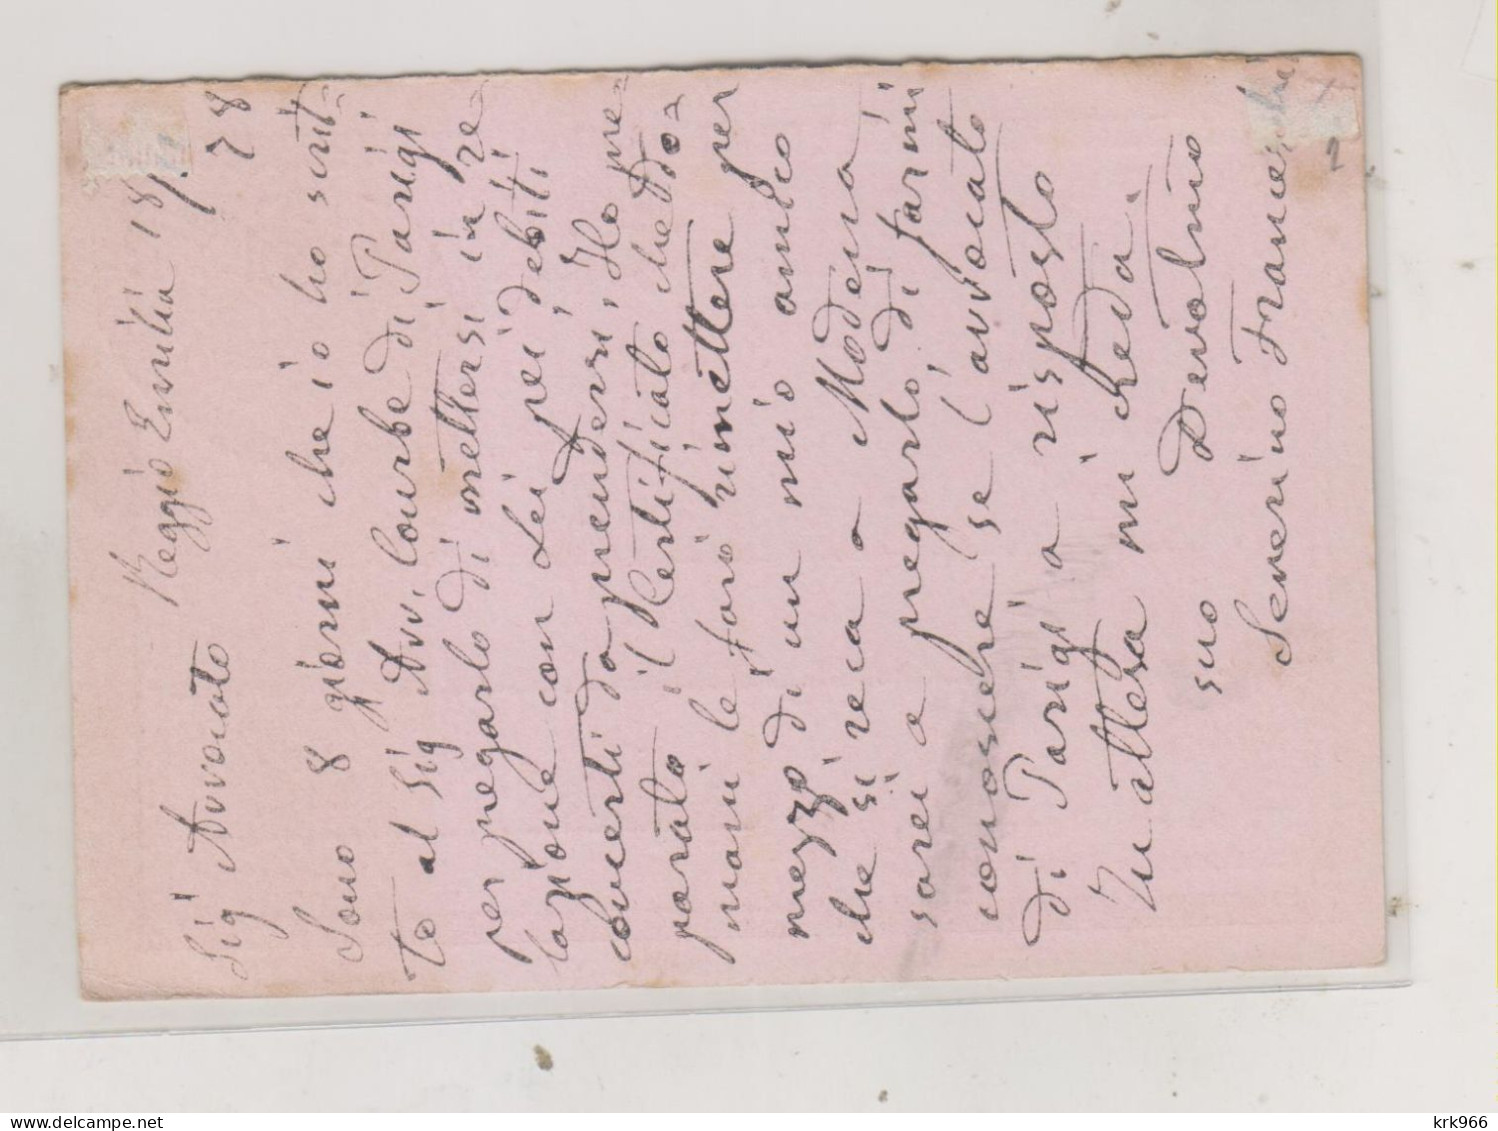 Reggio Emilia 18/7 78
Sig Avvocato
Sono 8 giorni che io ho scrit-
to al Sig Avv. Lourbe di Parigi
per pregarlo di mettersi in re-
lazione con Lei pei debiti
concerti da prendersi, Ho pre-
parato il Certificato che do-
mani le farò rimettere per
mezzo di un mio amico
che si reca a Modena
sarei a pregarlo, di farmi
conoscere se l'avvocato
di Parigi a risposto
In attesa mi creda.
suo Devotmo
Severino
krk966